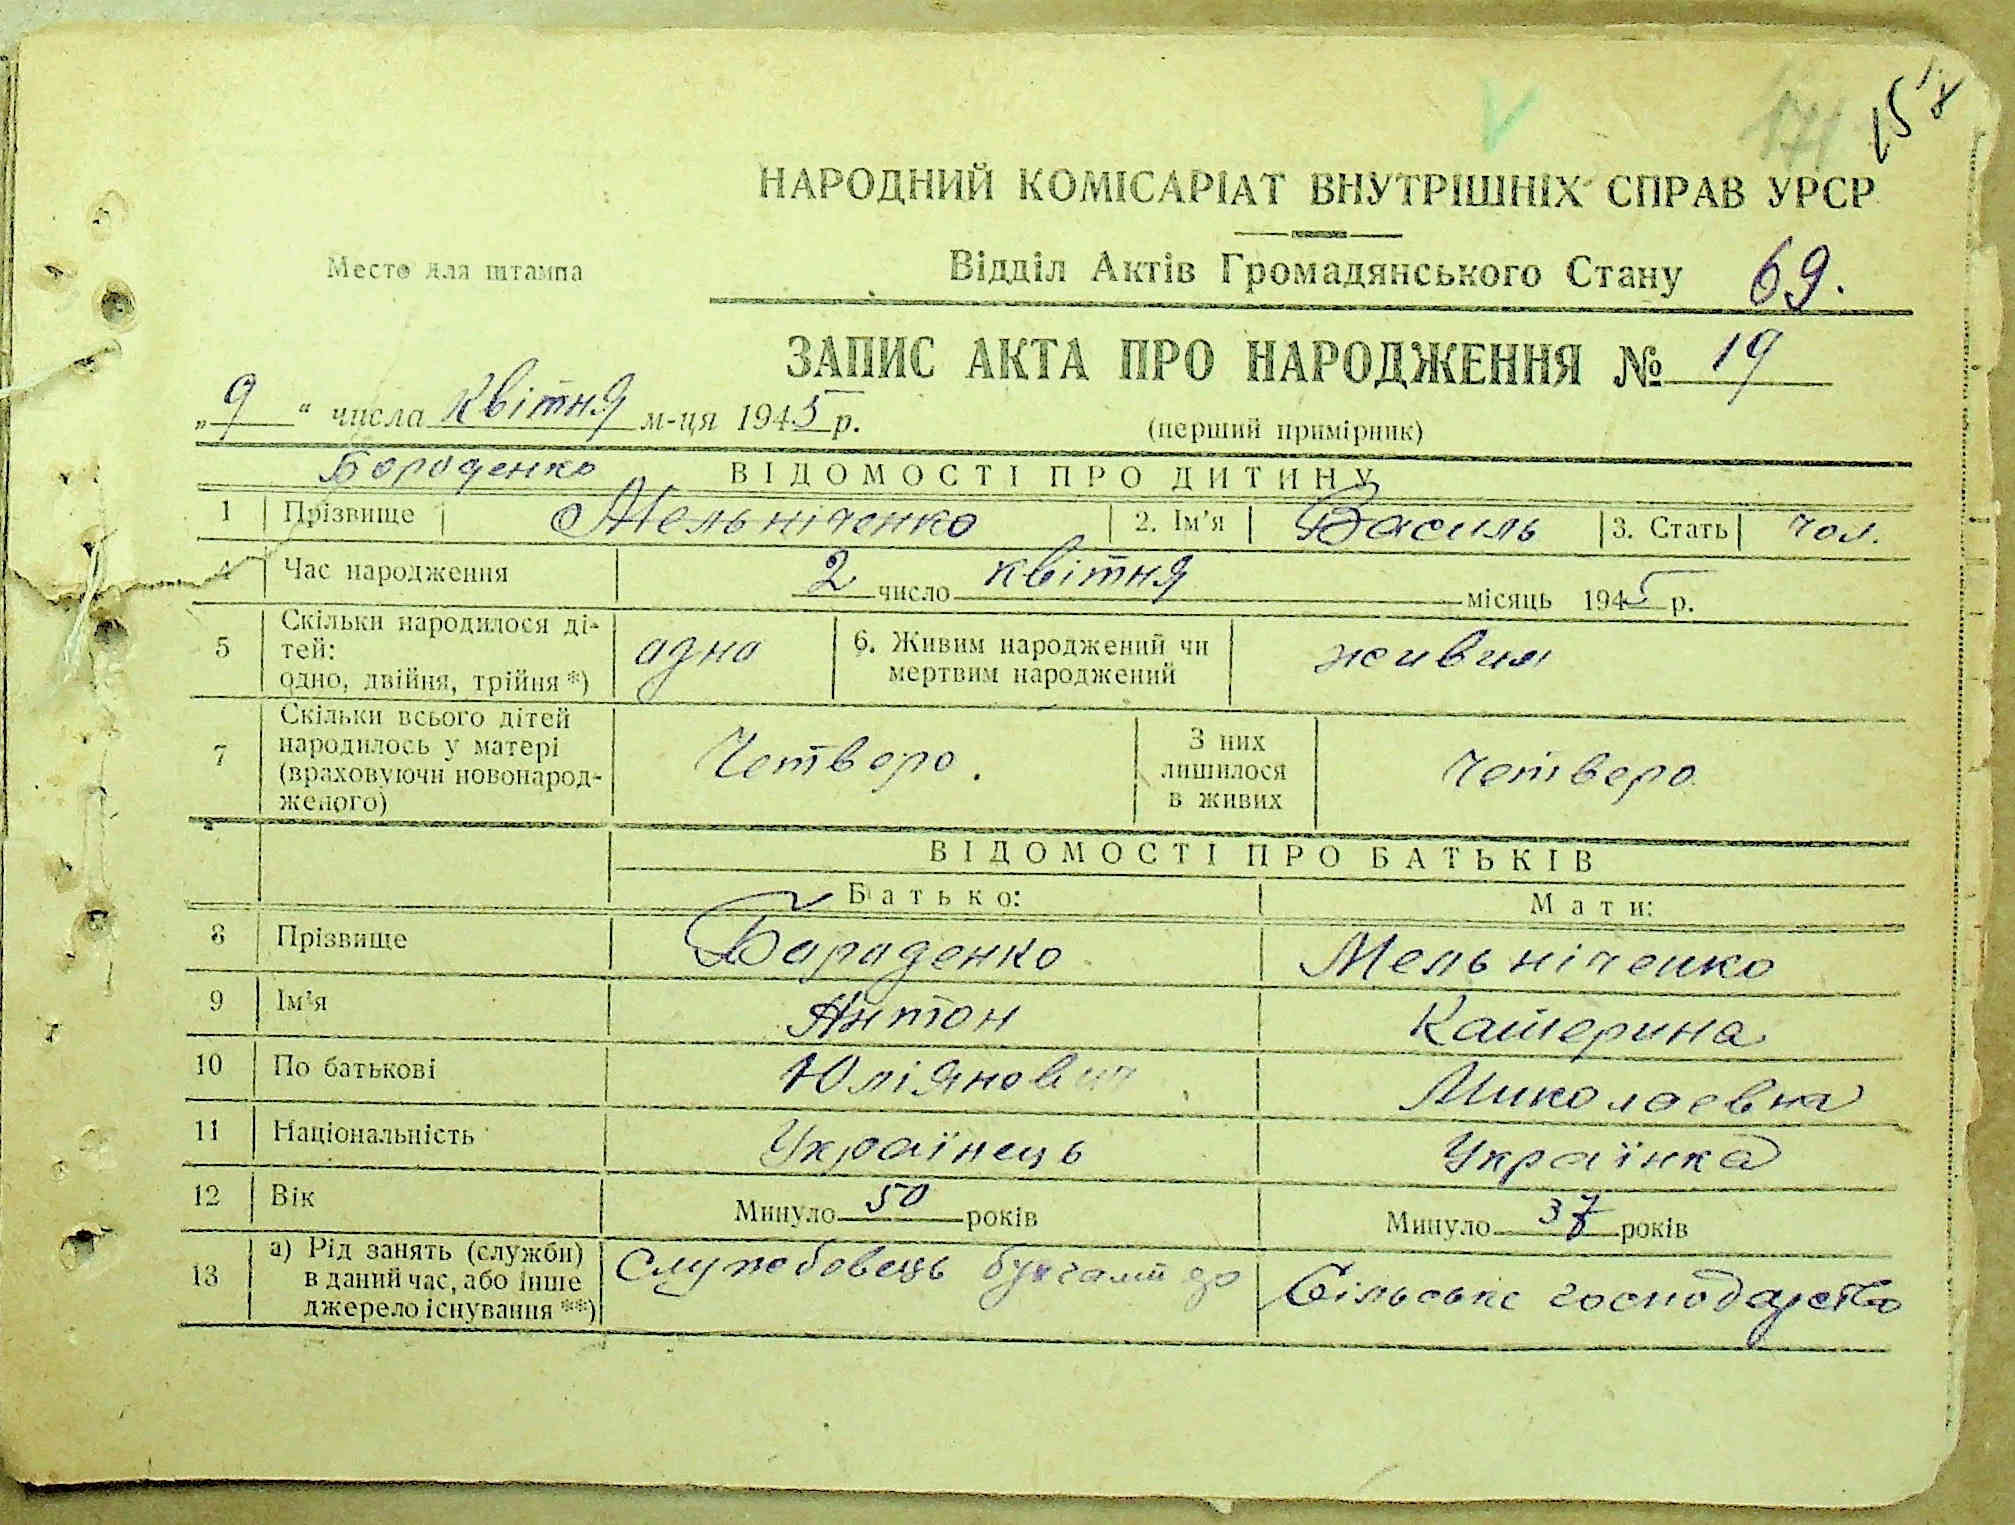 171
158
НАРОДНИЙ КОМІСАРІАТ ВНУТРІШНІХ СПРАВ УРСР
Место для штампа
Відділ Актів Громадянського Стану 69.
ЗАПИС АКТА ПРО НАРОДЖЕННЯ № 19
„9“ числа Квітня м-ця 1945 р.
(перший примірник)
Бороденко
ВІДОМОСТІ ПРО ДИТИНУ
1 Прізвище Мельніченко 2. Ім’я Василь 3. Стать чол.
4 Час народження 2 число квітня місяць 1945 р.
5 Скільки народилося ді-
тей:
одно, двійня, трійня *) адна 6. Живим народжений чи
мертвим народжений живим
7 Скільки всього дітей
народилось у матері
(враховуючи новонарод-
женого) Четверо. З них
лишилося
в живих Четверо
ВІДОМОСТІ ПРО БАТЬКІВ
Батько: Мати:
8 Прізвище Бароденко Мельніченко
9 Ім’я Антон Катерина
10 По батькові Юліянович Миколаевна
11 Національність Українець Українка
12 Вік Минуло 50 років Минуло 37 років
13 а) Рід занять (служби)
в даний час, або інше
джерело існування **) Службовець бухгалтер Сільське господарство